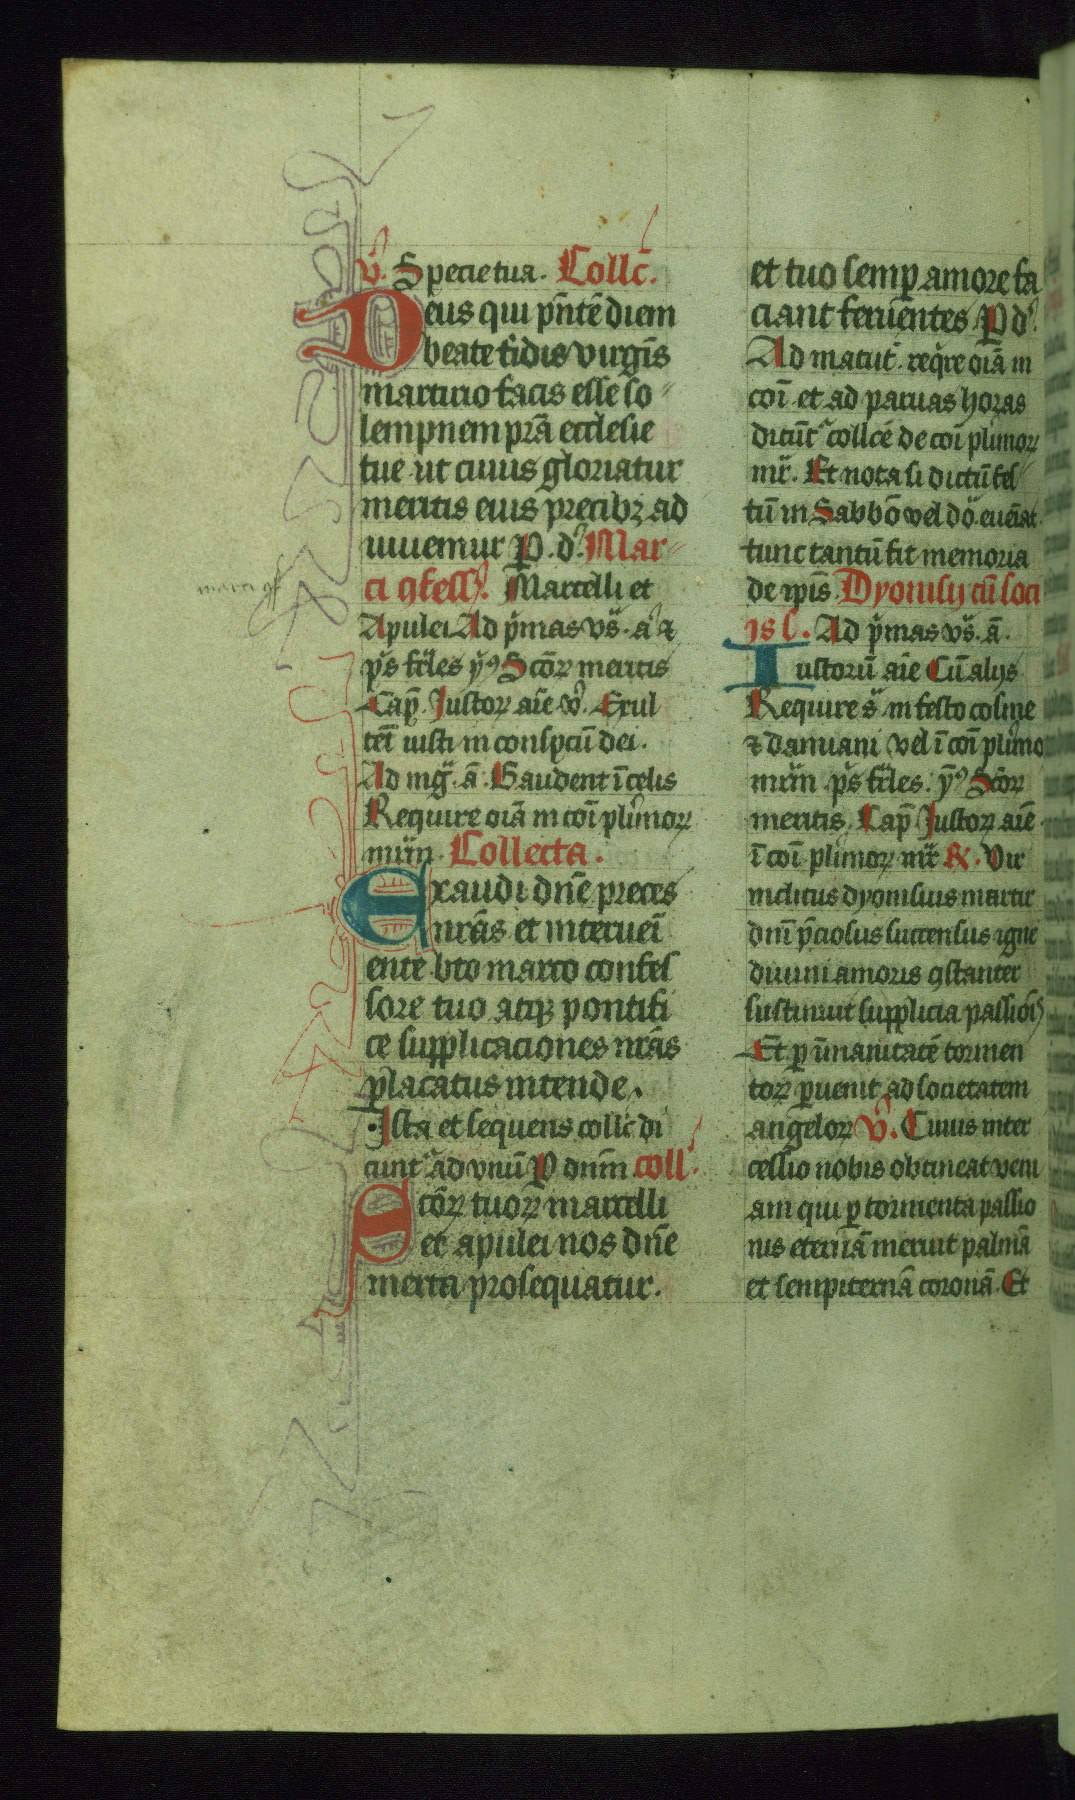 v̄. Specie tua. Collc̄.
Deus qui pn̄tē diem
beate fidis virgīs
martirio facis esse so
lempnem prā ecclesie
tue ut cuius gloriatur
meritis eius precibꝫ ad
iuuemur P. d. Mar
ci ꝯfess. Marcelli et
Apulei Ad p̄mas vs̄. a ⁊
ps̄ fr̄les yꝰ Scōꝝ meritis
Cap̄. Iustoꝝ aīe v̄. Exul
tēt iusti in conspcū dei.
Ad mḡ. ā. Gaudent ī celis
Require oīā in coī plimoꝝ
mr̄m. Collecta.
marci ꝯf
Exaudi dn̄e preces
nrās et interueī
ente bto marco confes
sore tuo atqꝫ pontifi
ce supplicaciones nrās
placatus intende.
Ista et sequens collc̄ di
cunt ad vnū P dn̄m coll
Scōꝝ tuoꝝ marcelli
et apulei nos dn̄e
merita prosequatur.
et tuo semꝑ amore fa
ciant feruentes P d.
Ad matut. reqre oīā in
coī et ad paruas horas
dicūt collcē de coī plimoꝝ
mr̄. Et nota si dictū fes
tū in Sabbō vel dō. eueīat
tunc tantū fit memoria
de ip̄is Dyonisij cū soci
js s. Ad p̄mas vs̄. ā.
Iustorū aīe Cū alijs
Require s̄ in festo cosme
⁊ damiani vel ī coī plimo
mr̄m ps̄ fr̄les. yꝰ Scōꝝ
meritis Cap̄ Iustoꝝ aīe
ī coī plimoꝝ mr̄ ℟. Vir
inclitus dyonisius martir
dn̄i p̄ciosus succensus igne
diuini amoris ꝯstanter
sustinuit supplicia passiōis
Et ꝑ īmanitatē tormen
toꝝ ꝑuenit ad societatem
angeloꝝ v̄. Cuius inter
cessio nobis obtineat veni
am qui ꝑ tormenta passio
nis eternā meruit palmā
et sempiternā coronā. Et